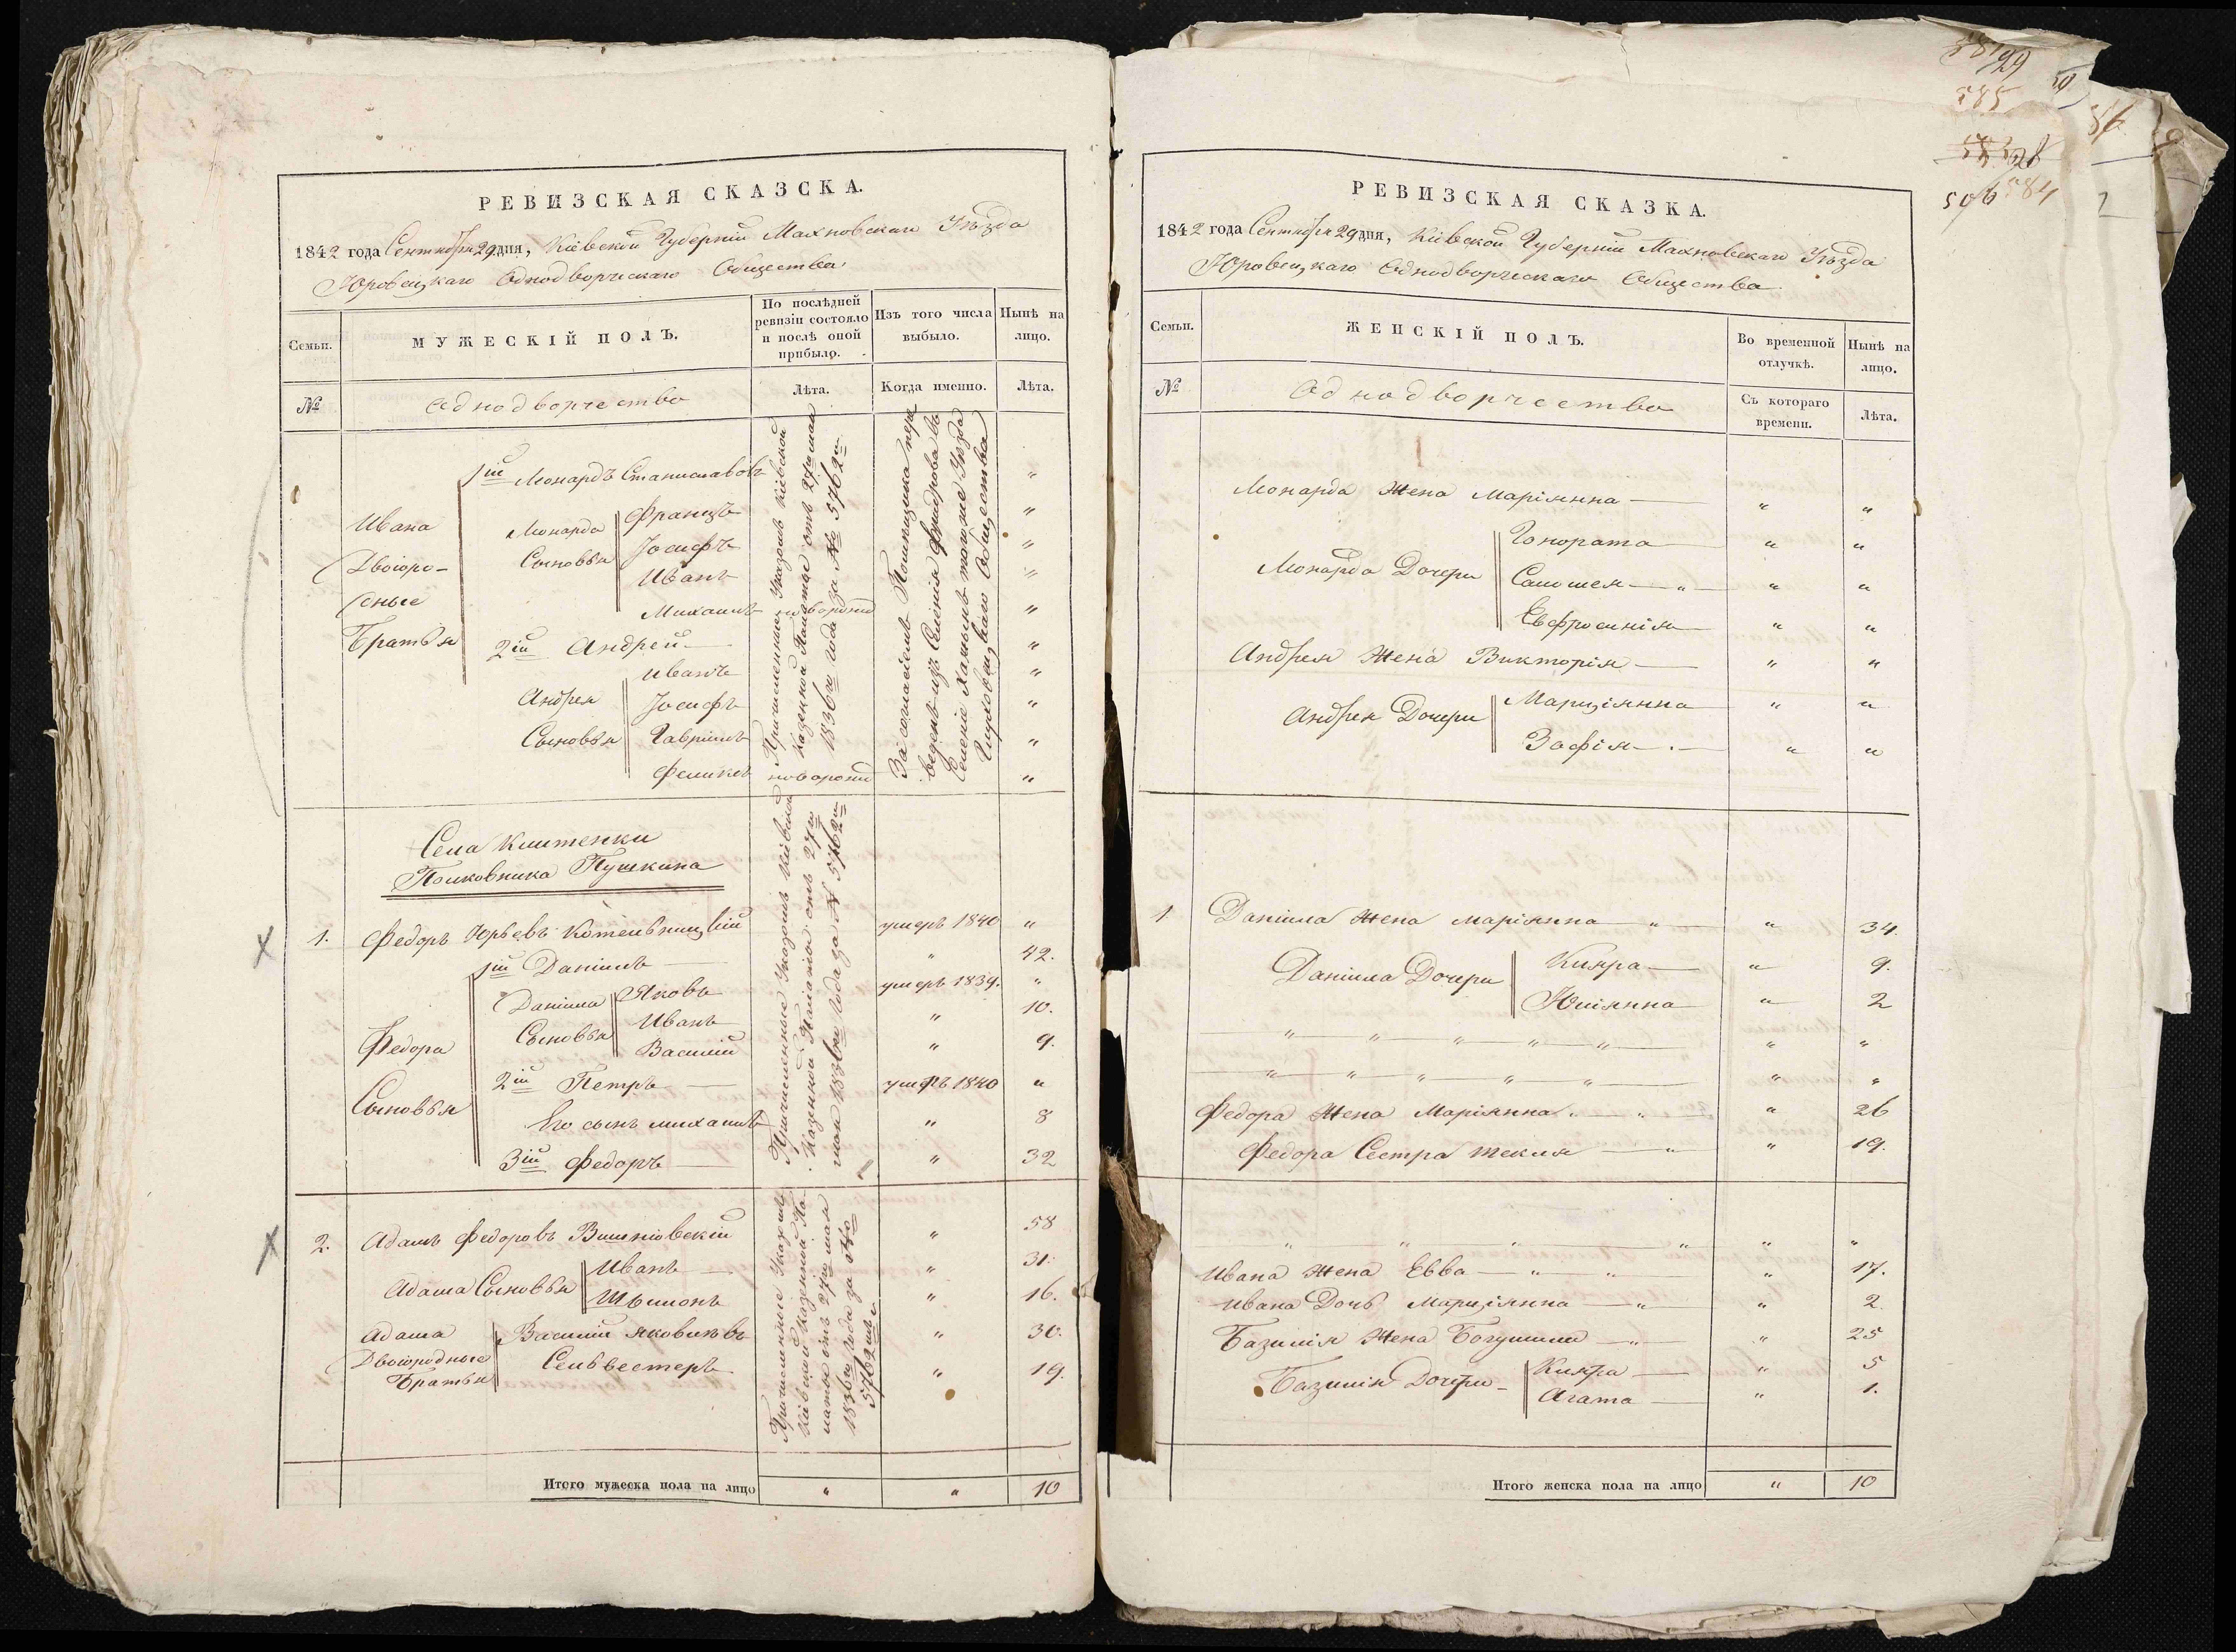 РЕВИЗСКАЯ СКАЗСКА.
1842 года Сентября 29 дня, Кіевской Губерніи Махновскаго Уѣзда
Юровецкаго Однодворческаго Общества
Семьи.
МУЖЕСКІЙ ПОЛЪ.
По послѣдней ревизіи состояло и послѣ оной прибыло.
Изъ того числа выбыло.
Нынѣ на лицо.
№
Однодворчество
Лѣта.
Когда именно.
Лѣта.
1й Леонардъ Станиславовъ "
Ивана
Двоюро-
дные
Братья
Леонарда
Сыновья
Францъ "
Іосифъ "
Иванъ "
Михаилъ новорожд "
2й Андрей "
Андрея
Сыновья
Иванъ "
Іосифъ "
Гавріилъ "
Феликсъ новорожд "
Причисленные Указомъ Кіевской
Казенной Палаты отъ 27го мая
1836го года за № 5762м
За согласіемъ Помѣщика пере
веденъ изъ Селенія въ
Селеніе тогоже Уѣзда
Общества
Села Клитенки
Полковника Пушкина
1. Федоръ Юрьевъ Котельницкій умеръ 1840 "
Федора
Сыновья
1й Даніилъ " 42.
Даніила
Сыновья
Яковъ умеръ 1839. "
Иванъ " 10.
Василій " 9.
2й Петръ умеръ 1840 "
Его сынъ михаилъ " 8
3й Федоръ " 32
Причисленные Указомъ Кіевской
Казенной Палаты отъ 27го
мая 1836го года за № 5762м
2. Адамъ Федоровъ Вишнёвскій " 58
Адама Сыновья
Иванъ " 31.
Шымонъ " 16.
Адама
Двоюродные
Братья
Василій Яковлевъ " 30.
Сельвестеръ " 19.
Причисленные Указомъ
Кіевской Казенной Па-
латы отъ 27го мая
1836го года за №
5762мъ
Итого мужеска пола на лицо " " 10
РЕВИЗСКАЯ СКАЗКА.
1842 года Сентября 29 дня, Кіевской Губерніи Махновскаго Уѣзда
Юровецкаго Однодворческаго Общества.
Семьи.
ЖЕНСКІЙ ПОЛЪ.
Во временной отлучкѣ.
Нынѣ на лицо.
№
Однодворчество
Съ котораго времени.
Лѣта.
Леонарда Жена Маріянна " "
Леонарда Дочери
Гонората " "
Саломея " "
Евфросинія " "
Андрея Жена Викторія " "
Андрея Дочери
Марціянна " "
Зофія " "
1 Даніила Жена Маріянна " 34.
Даніила Дочери
Кляра " 9.
Юліянна " 2
" " " " " " "
" " " " " " "
Федора Жена Маріянна " 26
Федора Сестра Текля " 19.
" " " " "
Ивана Жена Евва " 17.
Ивана Дочь Марціянна " 2.
Базилія Жена " 25
Базилія Дочери
Кляра " 5
Агата " 1.
Итого женска пола на лицо " 10
585
506
584